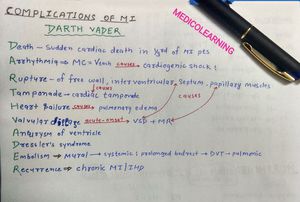 COMPLICATIONS OF MI
DARTH VADER
MEDICOLEARNING
Death - Sudden cardiac death in 1/3rd of MI pts
Arrhythmia → MC = Vtach causes → cardiogenic shock
Rupture - of free wall, interventricular septum, papillary muscles
causes
causes
Tamponade → cardiac tamponade
Heart failure causes → pulmonary edema
Valvular disease acute-onset → VSD + MR
Aneurysm of ventricle
Dressler's syndrome
Embolism → Mural → systemic; prolonged bedrest → DVT → pulmonic
Recurrence → chronic MI/IHD